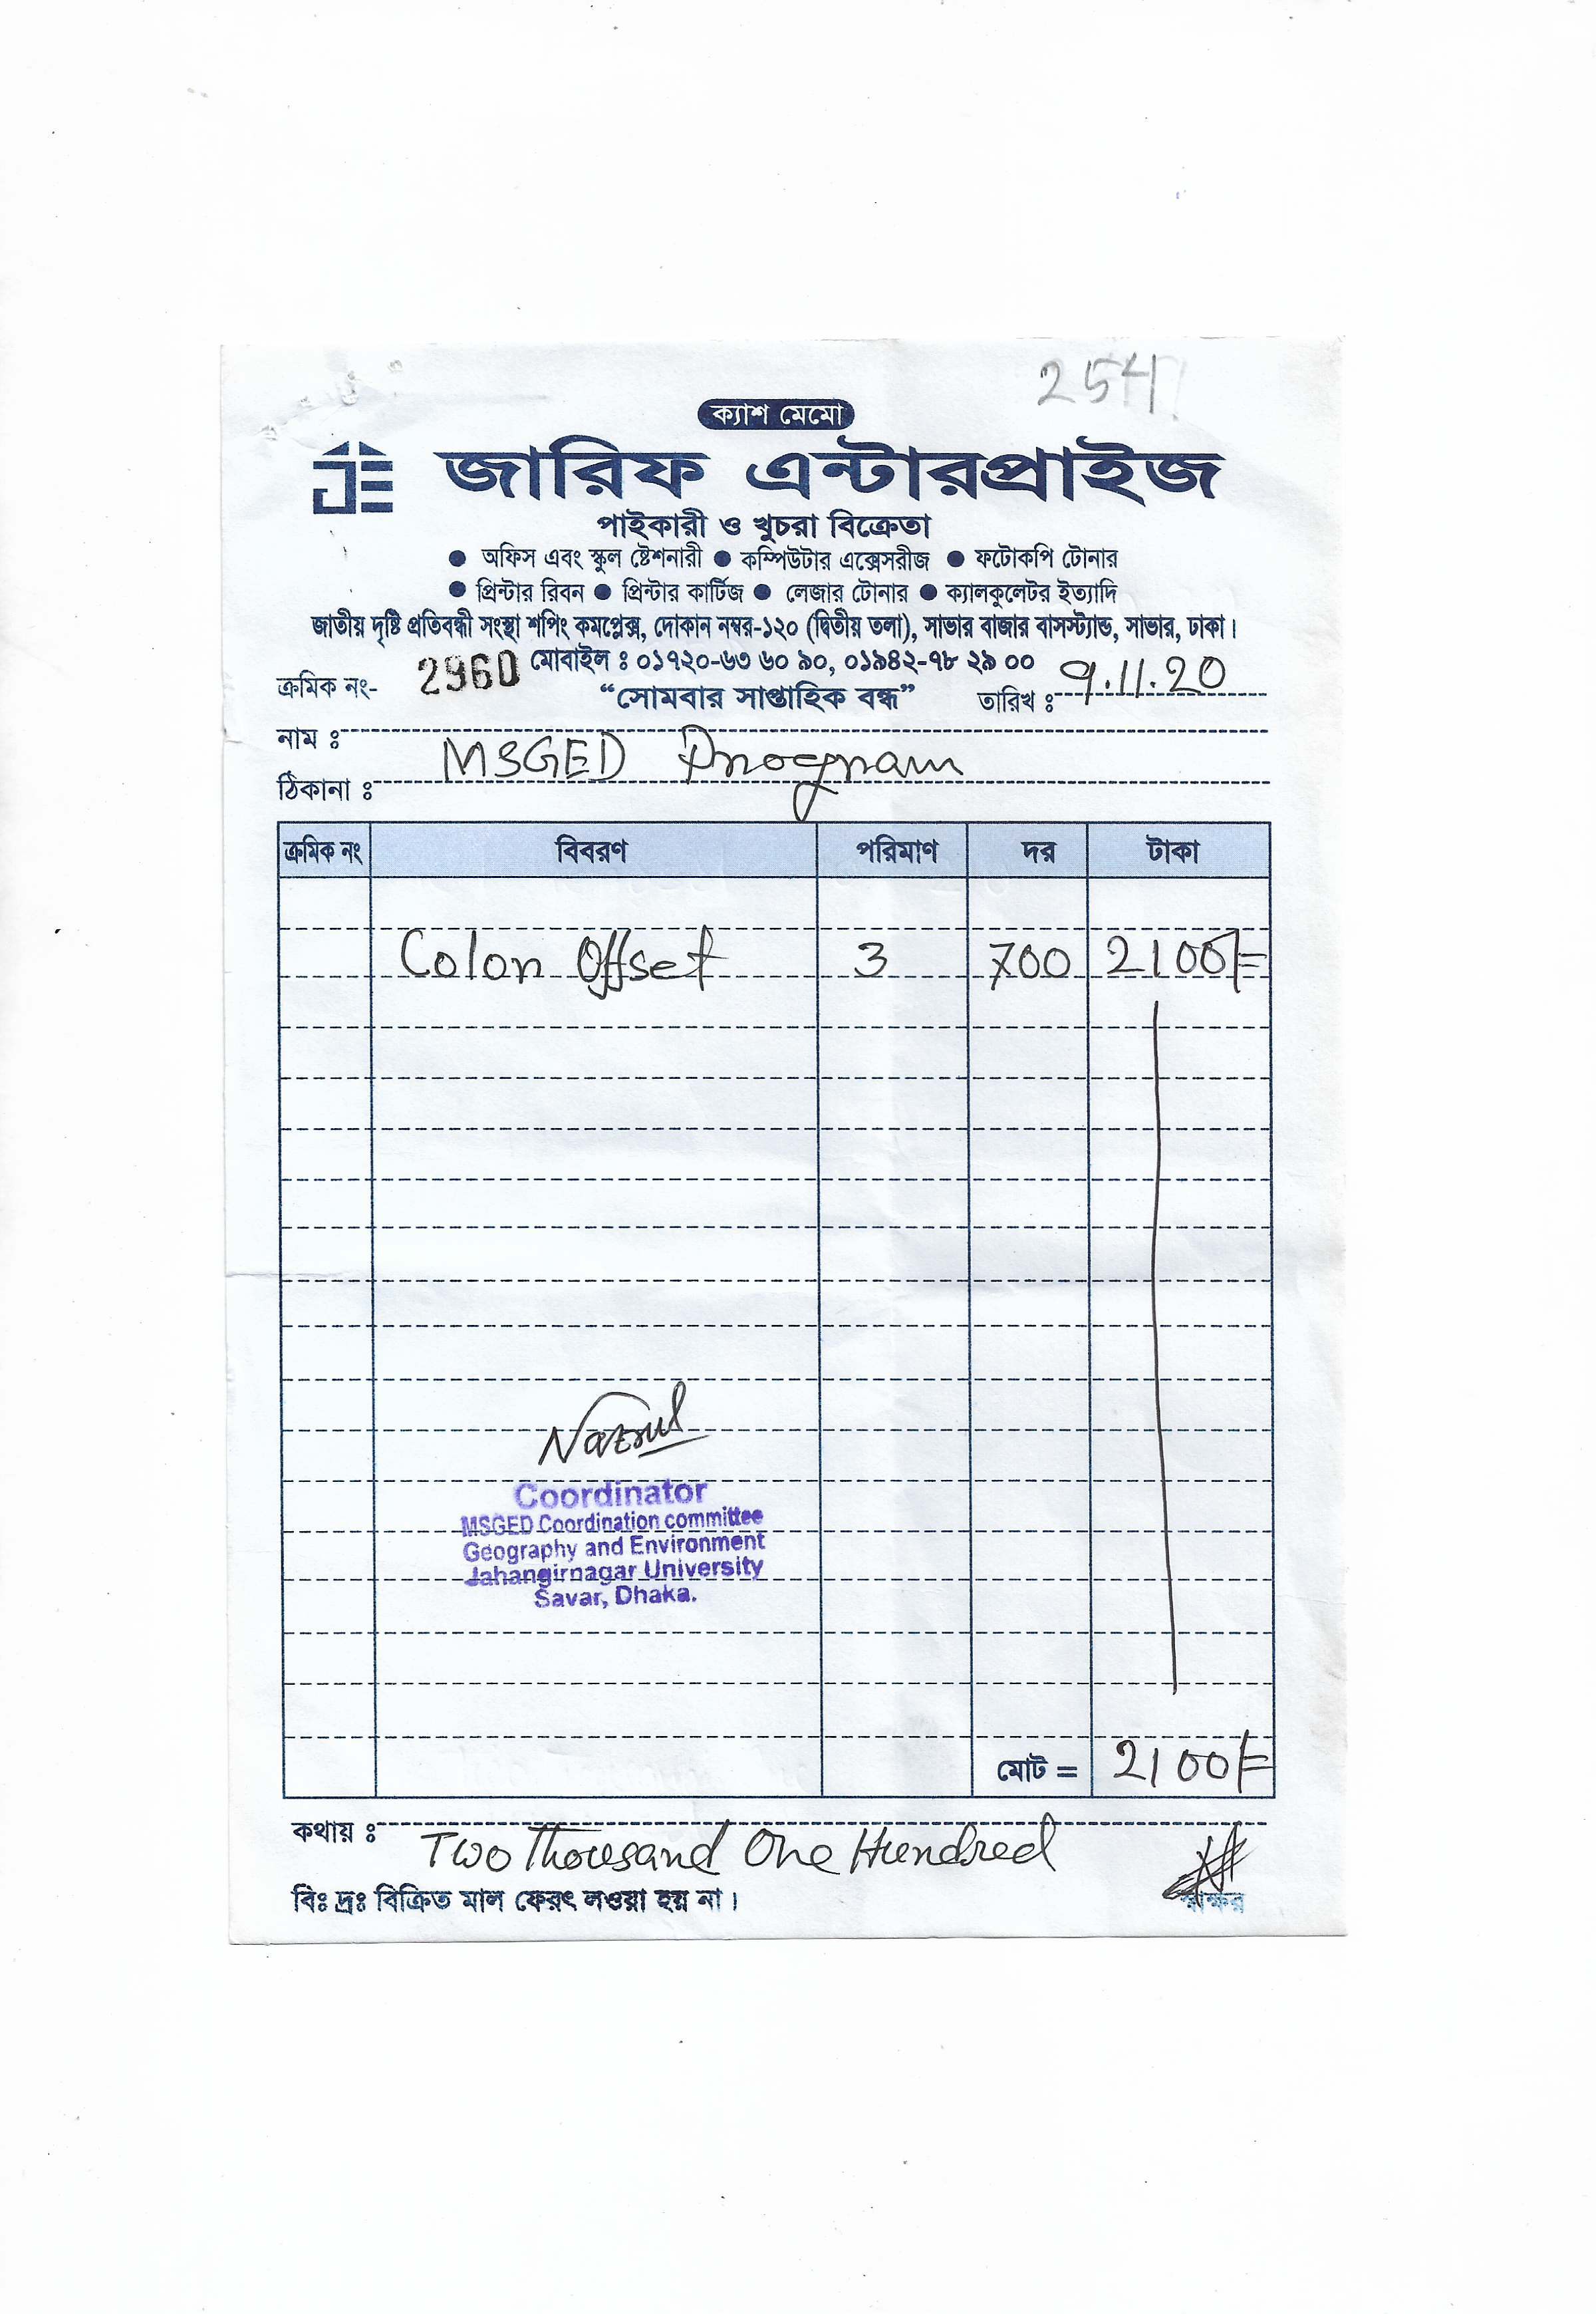 254
ক্যাশ মেমো
JE জারিফ এন্টারপ্রাইজ
পাইকারী ও খুচরা বিক্রেতা
● অফিস এবং স্কুল ষ্টেশনারী ● কম্পিউটার এক্সেসরীজ ● ফটোকপি টোনার
● প্রিন্টার রিবন ● প্রিন্টার কার্টিজ ● লেজার টোনার ● ক্যালকুলেটর ইত্যাদি
জাতীয় দৃষ্টি প্রতিবন্ধী সংস্থা শপিং কমপ্লেক্স, দোকান নম্বর-১২০ (দ্বিতীয় তলা), সাভার বাজার বাসস্ট্যান্ড, সাভার, ঢাকা।
মোবাইল ঃ ০১৭২০-৬৩ ৬০ ৯০, ০১৯৪২-৭৮ ২৯ ০০
ক্রমিক নং- 2960 “সোমবার সাপ্তাহিক বন্ধ” তারিখ ঃ 9.11.20
নাম ঃ MSGED Program
ঠিকানা ঃ
ক্রমিক নং বিবরণ পরিমাণ দর টাকা
Color Offset 3 700 2100/=
Nazrul
Coordinator
MSGED Coordination committee
Geography and Environment
Jahangirnagar University
Savar, Dhaka.
মোট = 2100/=
কথায় ঃ Two Thousand One Hundred
বিঃ দ্রঃ বিক্রিত মাল ফেরৎ লওয়া হয় না। স্বাক্ষর